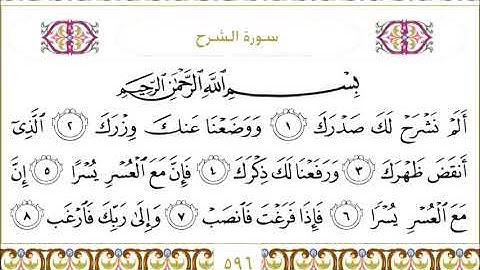 سورة الشرح
بِسْمِ اللَّهِ الرَّحْمَٰنِ الرَّحِيمِ
أَلَمْ نَشْرَحْ لَكَ صَدْرَكَ ١ وَوَضَعْنَا عَنكَ وِزْرَكَ ٢ الَّذِي
أَنقَضَ ظَهْرَكَ ٣ وَرَفَعْنَا لَكَ ذِكْرَكَ ٤ فَإِنَّ مَعَ الْعُسْرِ يُسْرًا ٥ إِنَّ
مَعَ الْعُسْرِ يُسْرًا ٦ فَإِذَا فَرَغْتَ فَانصَبْ ٧ وَإِلَىٰ رَبِّكَ فَارْغَب ٨
٥٩٦